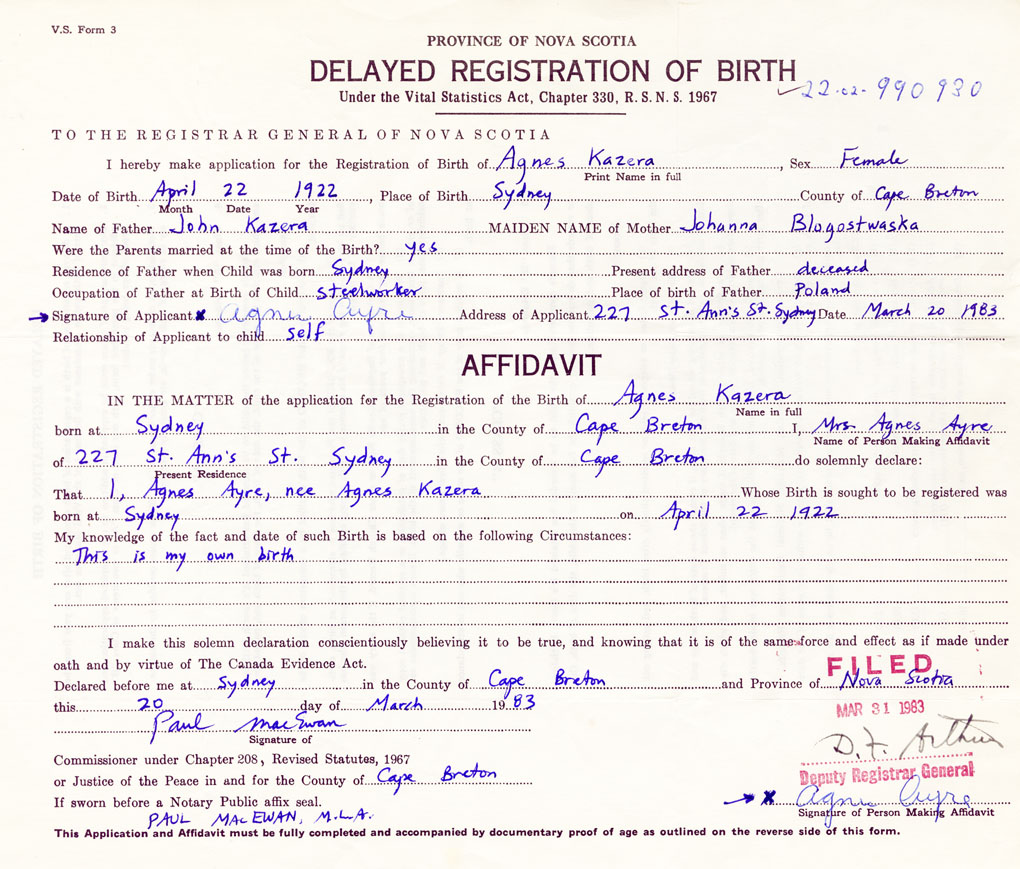 V.S. Form 3
PROVINCE OF NOVA SCOTIA
DELAYED REGISTRATION OF BIRTH
22-02-990 930
Under the Vital Statistics Act, Chapter 330, R.S.N.S. 1967
TO THE REGISTRAR GENERAL OF NOVA SCOTIA
I hereby make application for the Registration of Birth of Agnes Kazera, Sex Female
Print Name in full
Date of Birth April 22 1922, Place of Birth Sydney County of Cape Breton
Month Date Year
Name of Father John Kazera MAIDEN NAME of Mother Johanna Blogostwaska
Were the Parents married at the time of the Birth? yes
Residence of Father when Child was born Sydney Present address of Father deceased
Occupation of Father at Birth of Child Steelworker Place of birth of Father Poland
Signature of Applicant x Agnes Ayre Address of Applicant 227 St. Ann's St. Sydney Date March 20 1983
Relationship of Applicant to child self
AFFIDAVIT
IN THE MATTER of the application for the Registration of the Birth of Agnes Kazera
Name in full
born at Sydney in the County of Cape Breton I, Mrs. Agnes Ayre
Name of Person Making Affidavit
of 227 St. Ann's St. Sydney in the County of Cape Breton do solemnly declare:
Present Residence
That I, Agnes Ayre, nee Agnes Kazera Whose Birth is sought to be registered was
born at Sydney on April 22 1922
My knowledge of the fact and date of such Birth is based on the following Circumstances:
This is my own birth
I make this solemn declaration conscientiously believing it to be true, and knowing that it is of the same force and effect as if made under
oath and by virtue of The Canada Evidence Act.
FILED
Declared before me at Sydney in the County of Cape Breton and Province of Nova Scotia
this 20 day of March 1983
MAR 31 1983
Paul MacEwan
Signature of
D. F. Arthur
Commissioner under Chapter 208, Revised Statutes, 1967
Deputy Registrar General
or Justice of the Peace in and for the County of Cape Breton
x Agnes Ayre
If sworn before a Notary Public affix seal.
Signature of Person Making Affidavit
PAUL MACEWAN, M.L.A.
This Application and Affidavit must be fully completed and accompanied by documentary proof of age as outlined on the reverse side of this form.